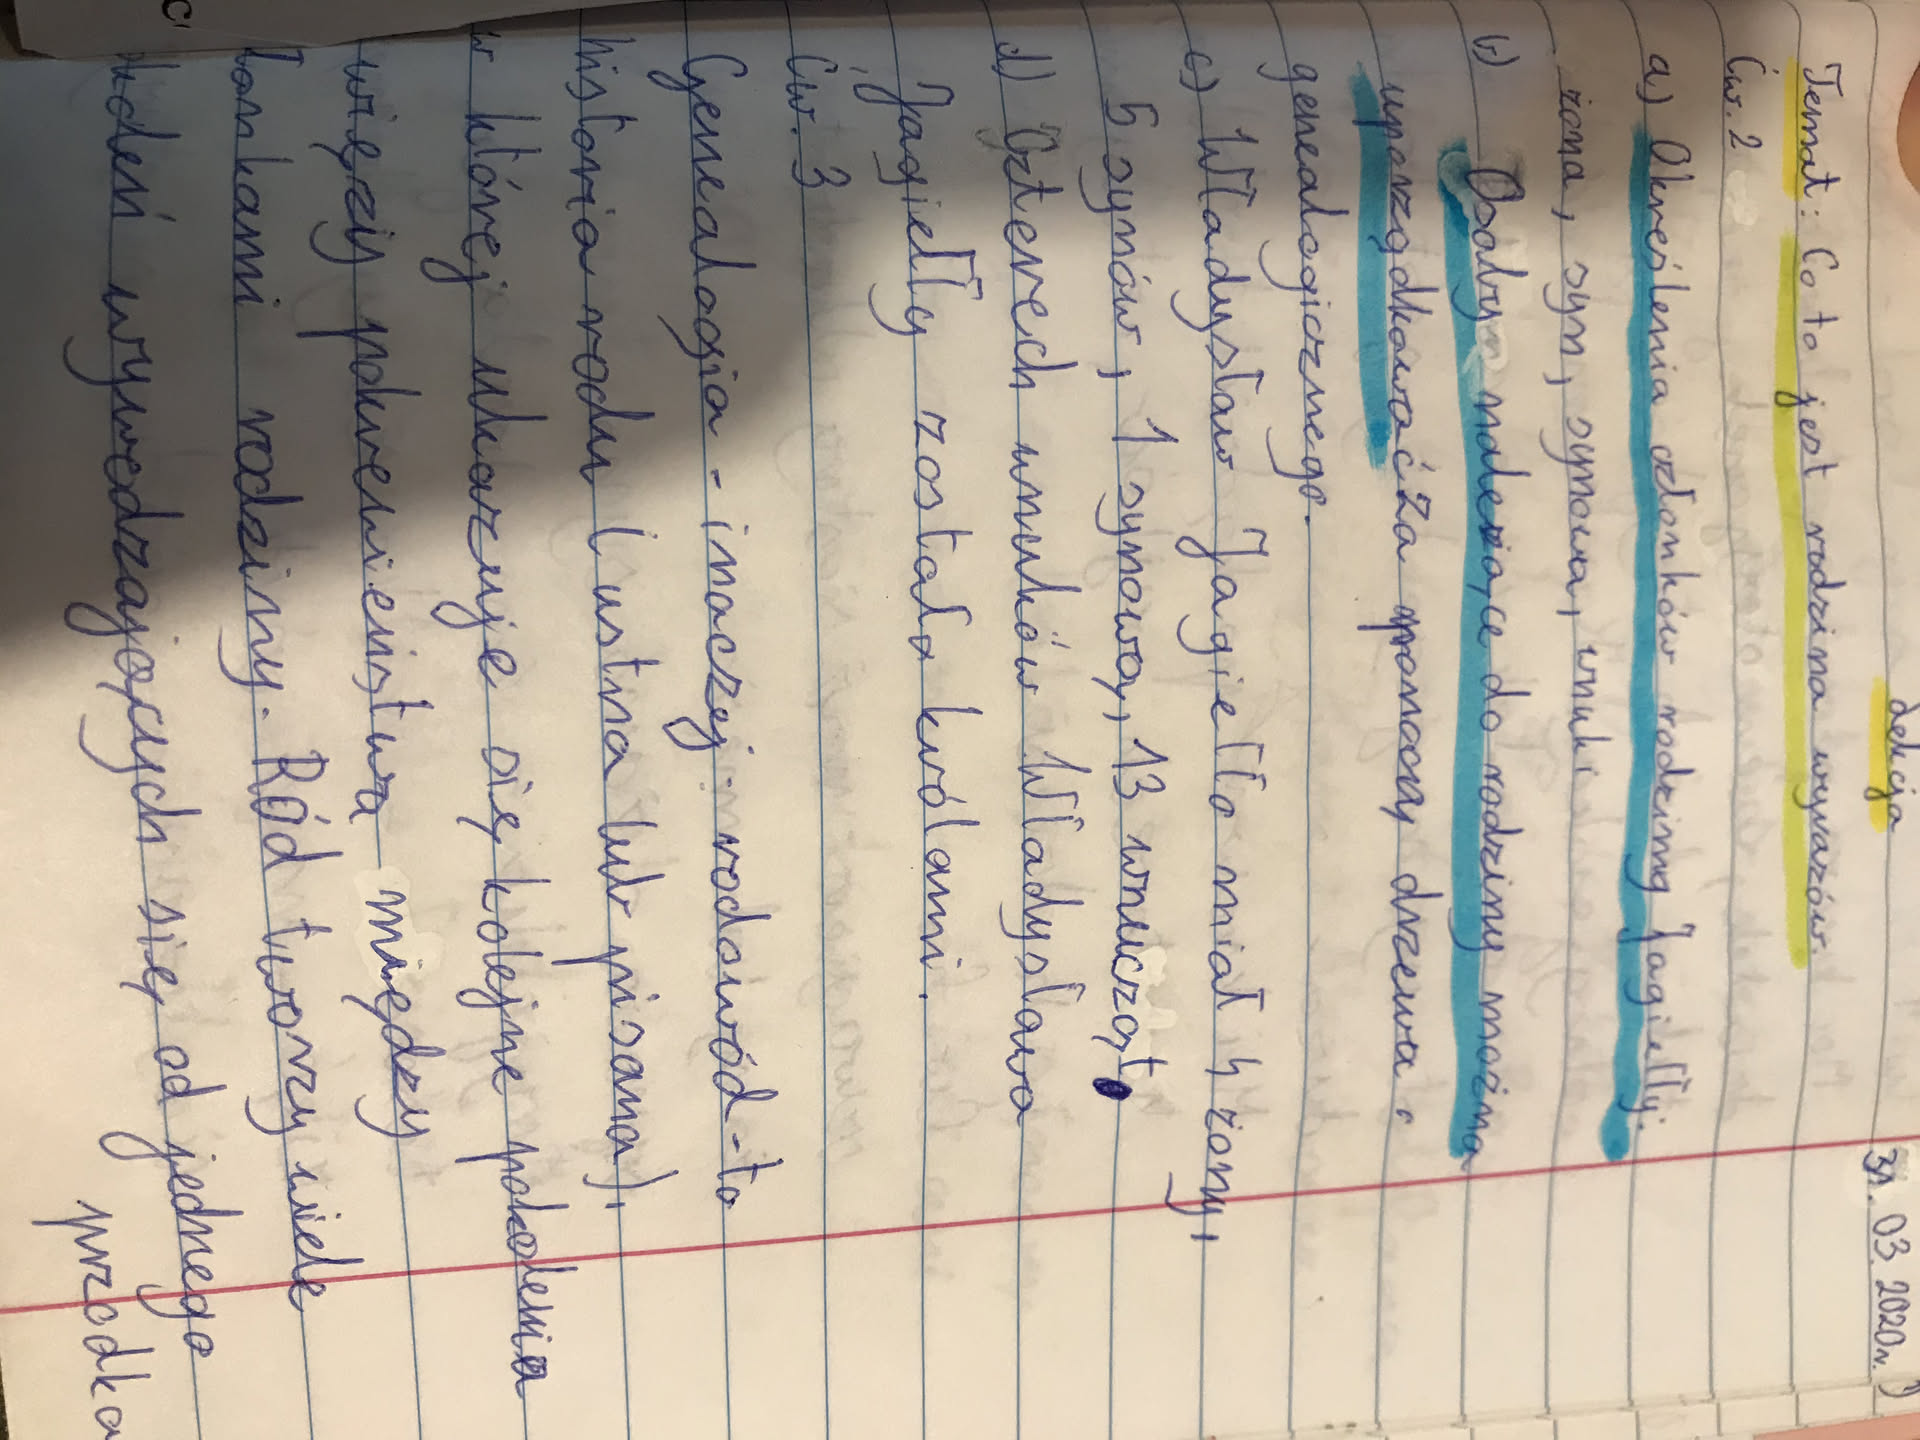 Lekcja 31. 03. 2020r.
Temat: Co to jest rodzina wyrazów.
Ćw. 2
a) Określenia członków rodziny Jagiełły:
żona, syn, synowa, wnuki
b) Osoby należące do rodziny można
uporządkować za pomocą drzewa
genealogicznego.
c) Władysław Jagiełło miał 4 żony,
5 synów, 1 synową, 13 wnucząt.
d) Czterech wnuków Władysława
Jagiełły zostało królami.
Ćw. 3
Genealogia - inaczej rodowód - to
historia rodu (ustna lub pisana),
w której ukazuje się kolejne pokolenia
więzi pokrewieństwa między
łonkami rodziny. Ród tworzy wiele
oleń wywodzających się od jednego
przodka